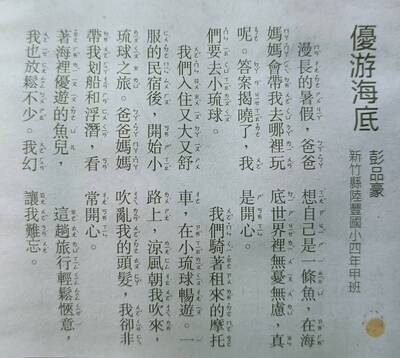 優游海底
彭品豪
新竹縣陸豐國小四年甲班
漫長的暑假，爸爸
媽媽會帶我去哪裡玩
呢。答案揭曉了，我
們要去小琉球。
我們入住又大又舒
服的民宿後，開始小
琉球之旅。爸爸媽媽
帶我划船和浮潛，看
著海裡優遊的魚兒，
我也放鬆不少。我幻
想自己是一條魚，在海
底世界裡無憂無慮，真
是開心。
我們騎著租來的摩托
車，在小琉球暢遊。一
路上，涼風朝我吹來，
吹亂我的頭髮，我卻非
常開心。
這趟旅行輕鬆愜意，
讓我難忘。